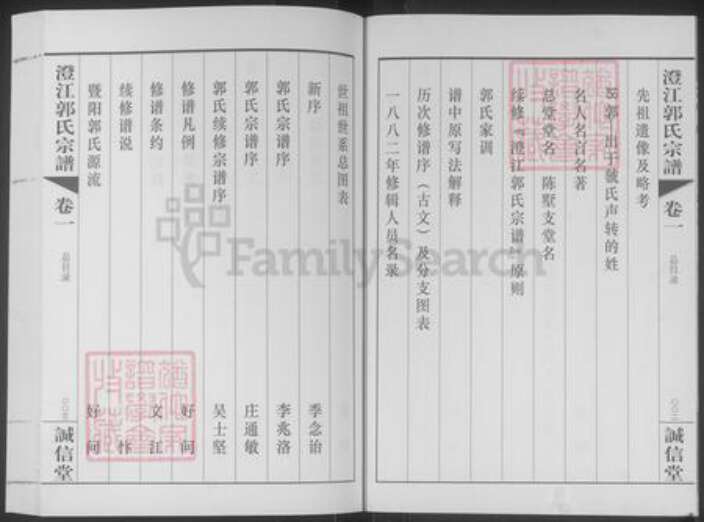 澄江郭氏宗譜
卷一
总目录
誠信堂
先祖遗像及略考
郭——出于虢氏声转的姓
名人名言名著
总堂堂名 陈墅支堂名
绥修《澄江郭氏宗谱》原则
郭氏家训
谱中原写法解释
历次修谱序（古文）及分支图表
一八八二年修辑人员名录
世祖世系总图表
新序 季念诒
郭氏宗谱序 李兆洛
郭氏宗谱序 庄通敏
郭氏续修宗谱序 吴士坚
修谱凡例 好问
修谱条约 文江
续修谱说 怍
暨阳郭氏源流 好问
澄江郭氏宗譜
卷一
总目录
誠信堂
FamilySearch